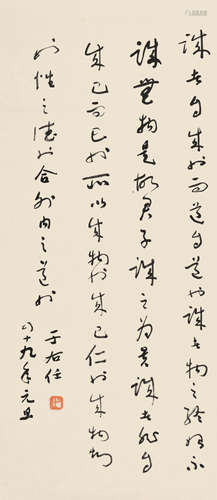 誠者自成也而道自道也誠者物之終始不
誠無物是故君子誠之為貴誠者非自
成己而已也所以成物也成己仁也成物知
也性之德也合外内之道也
于右任
四十九年元旦